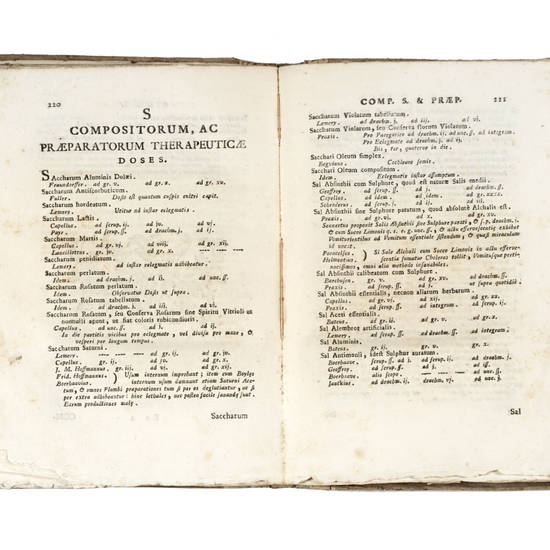 220
S
COMPOSITORUM, AC
PRÆPARATORUM THERAPEUTICÆ
DOSES.
Saccharum Aluminis Dulci.
ad gr. v. ad gr. x. ad gr. xv.
Saccharum Antiscorbuticum.
Fuller. Dosis est quantum cuspis cultri capit.
Saccharum hordeatum.
Lemery. Utitur ad instar eclegmatis.
Saccharum Lactis.
Capellus. ad scrup. ij. ad iv. ad vj.
ad scrup. ß. ad drachm. j. ad ij.
Saccharum Martis.
Capellus. ad gr. vj. ad viij. ad gr. xij.
ad gr. ij. ad gr. x.
Saccharum penidiatum.
Lemery. ad instar eclegmatis adhibeatur.
Saccharum perlatum.
Idem. ad drachm. ij. ad unc. ß.
Saccharum Rosatum perlatum.
Idem. Observatur Dosis ut supra.
Saccharum Rosatum tabellatum.
Idem. ad drachm. j. ad iij. ad vj.
Saccharum Rosatum, seu Conserva Rosarum sine Spiritu Vitrioli ut
nonnulli agunt, ut fiat coloris rubicundioris.
Capellus. ad unc. ß. ad j. ad ij.
In die pluries vicibus pro eclegmate, vel divisa pro mane, &
vesperi per longum tempus.
Saccharum Saturni.
Lemery. ad gr. ij. ad gr. iv.
Capellus. ad gr. j. ad ij.
J. M. Hoffmannus. ad gr. iij. ad iv.
Frid. Hoffmannus. Usum internum improbant; item cum Boyleo
Boerhaavius internum usum damnant etiam Saturni Ace-
tum, & omnes Plumbi præparationes tum si per os deglutiantur, ut si
per extra adhibeantur: hinc lethales, nec postea facile sananda sunt,
Earum productiones mala.
Saccharum
COMP. S. & PRÆP. 221
Saccharum Violatum tabellatum.
Lemery. ad drachm. j. ad iij. ad vj.
Saccharum Violarum, seu Conserva florum Violarum.
Praxis. Pro Paregorico ad drachm. ij. ad unc. ß. ad integram.
Pro Eclegmate ad drachm. ij.
Bis, ter, quaterve in die.
Sacchari Oleum simplex.
Cochleare semis.
Sacchari Oleum compositum.
Idem. Eclegmatis instar assumptum.
Sal Absinthii cum Sulphure, quod est naturæ Salis medii.
Geoffroy. ad scrup. ß. ad j. ad drachm. ß.
Capellus. ad idem. ad ad gr. xxxx.
Schröderus. ad scrup. j. ad ij. ad drachm. j.
Sal Absinthii sine Sulphure paratum, quod absolutè Alchali est.
Praxis. ad gr. vj. ad x. ad gr. xv.
Sennertus proponit Salis Absinthii sine Sulphure parati drachm. ß.
& cum Succo Limonis q. s. unc. ß. & in actu effervescentiæ exhibet
Vomituritientibus ad Vomitum essentialem sistendum, & quasi miraculum
id vocat.
Paracelsus, Si Sale Alchali cum Succo Limonis in actu efferve-
Helmontius, scentiæ sumatur Choleras tollit, Vomitusque perti-
nacissimos, imò aliis methodis insanabiles.
Sal Absinthii calibeatum cum Sulphure.
ad gr. xv. ad drachm. ß.
Praxis. ad scrup. ß. ad j. ut supra quotidiè.
Sal Absinthii essentialis, necnon aliarum herbarum.
Capellus. ad gr. vj. ad xij. ad gr. xv.
Praxis. ad scrup. ß. ad integrum. ad scrup. ij.
Sal Aceti essentialis.
Bateus. ad gr. iij. ad gr. v.
Sal Alembrot artificialis.
Lemery. ad scrup. ß. ad integrum.
Sal Aluminis.
Bateus. gr. ij. ad gr. x.
Sal Antimonii, idest Sulphur auratum.
Boerhaave. ad scrup. ß. ad j. ad scrup. ij. ad drachm. j.
Geoffroy. ad scrup. j. ad ij. ad drachm. j.
Boerhaave. alio scopo ad unc. ß.
Junckius. ad drachm. ij. drachm. vj. ad unc. j.
Sal